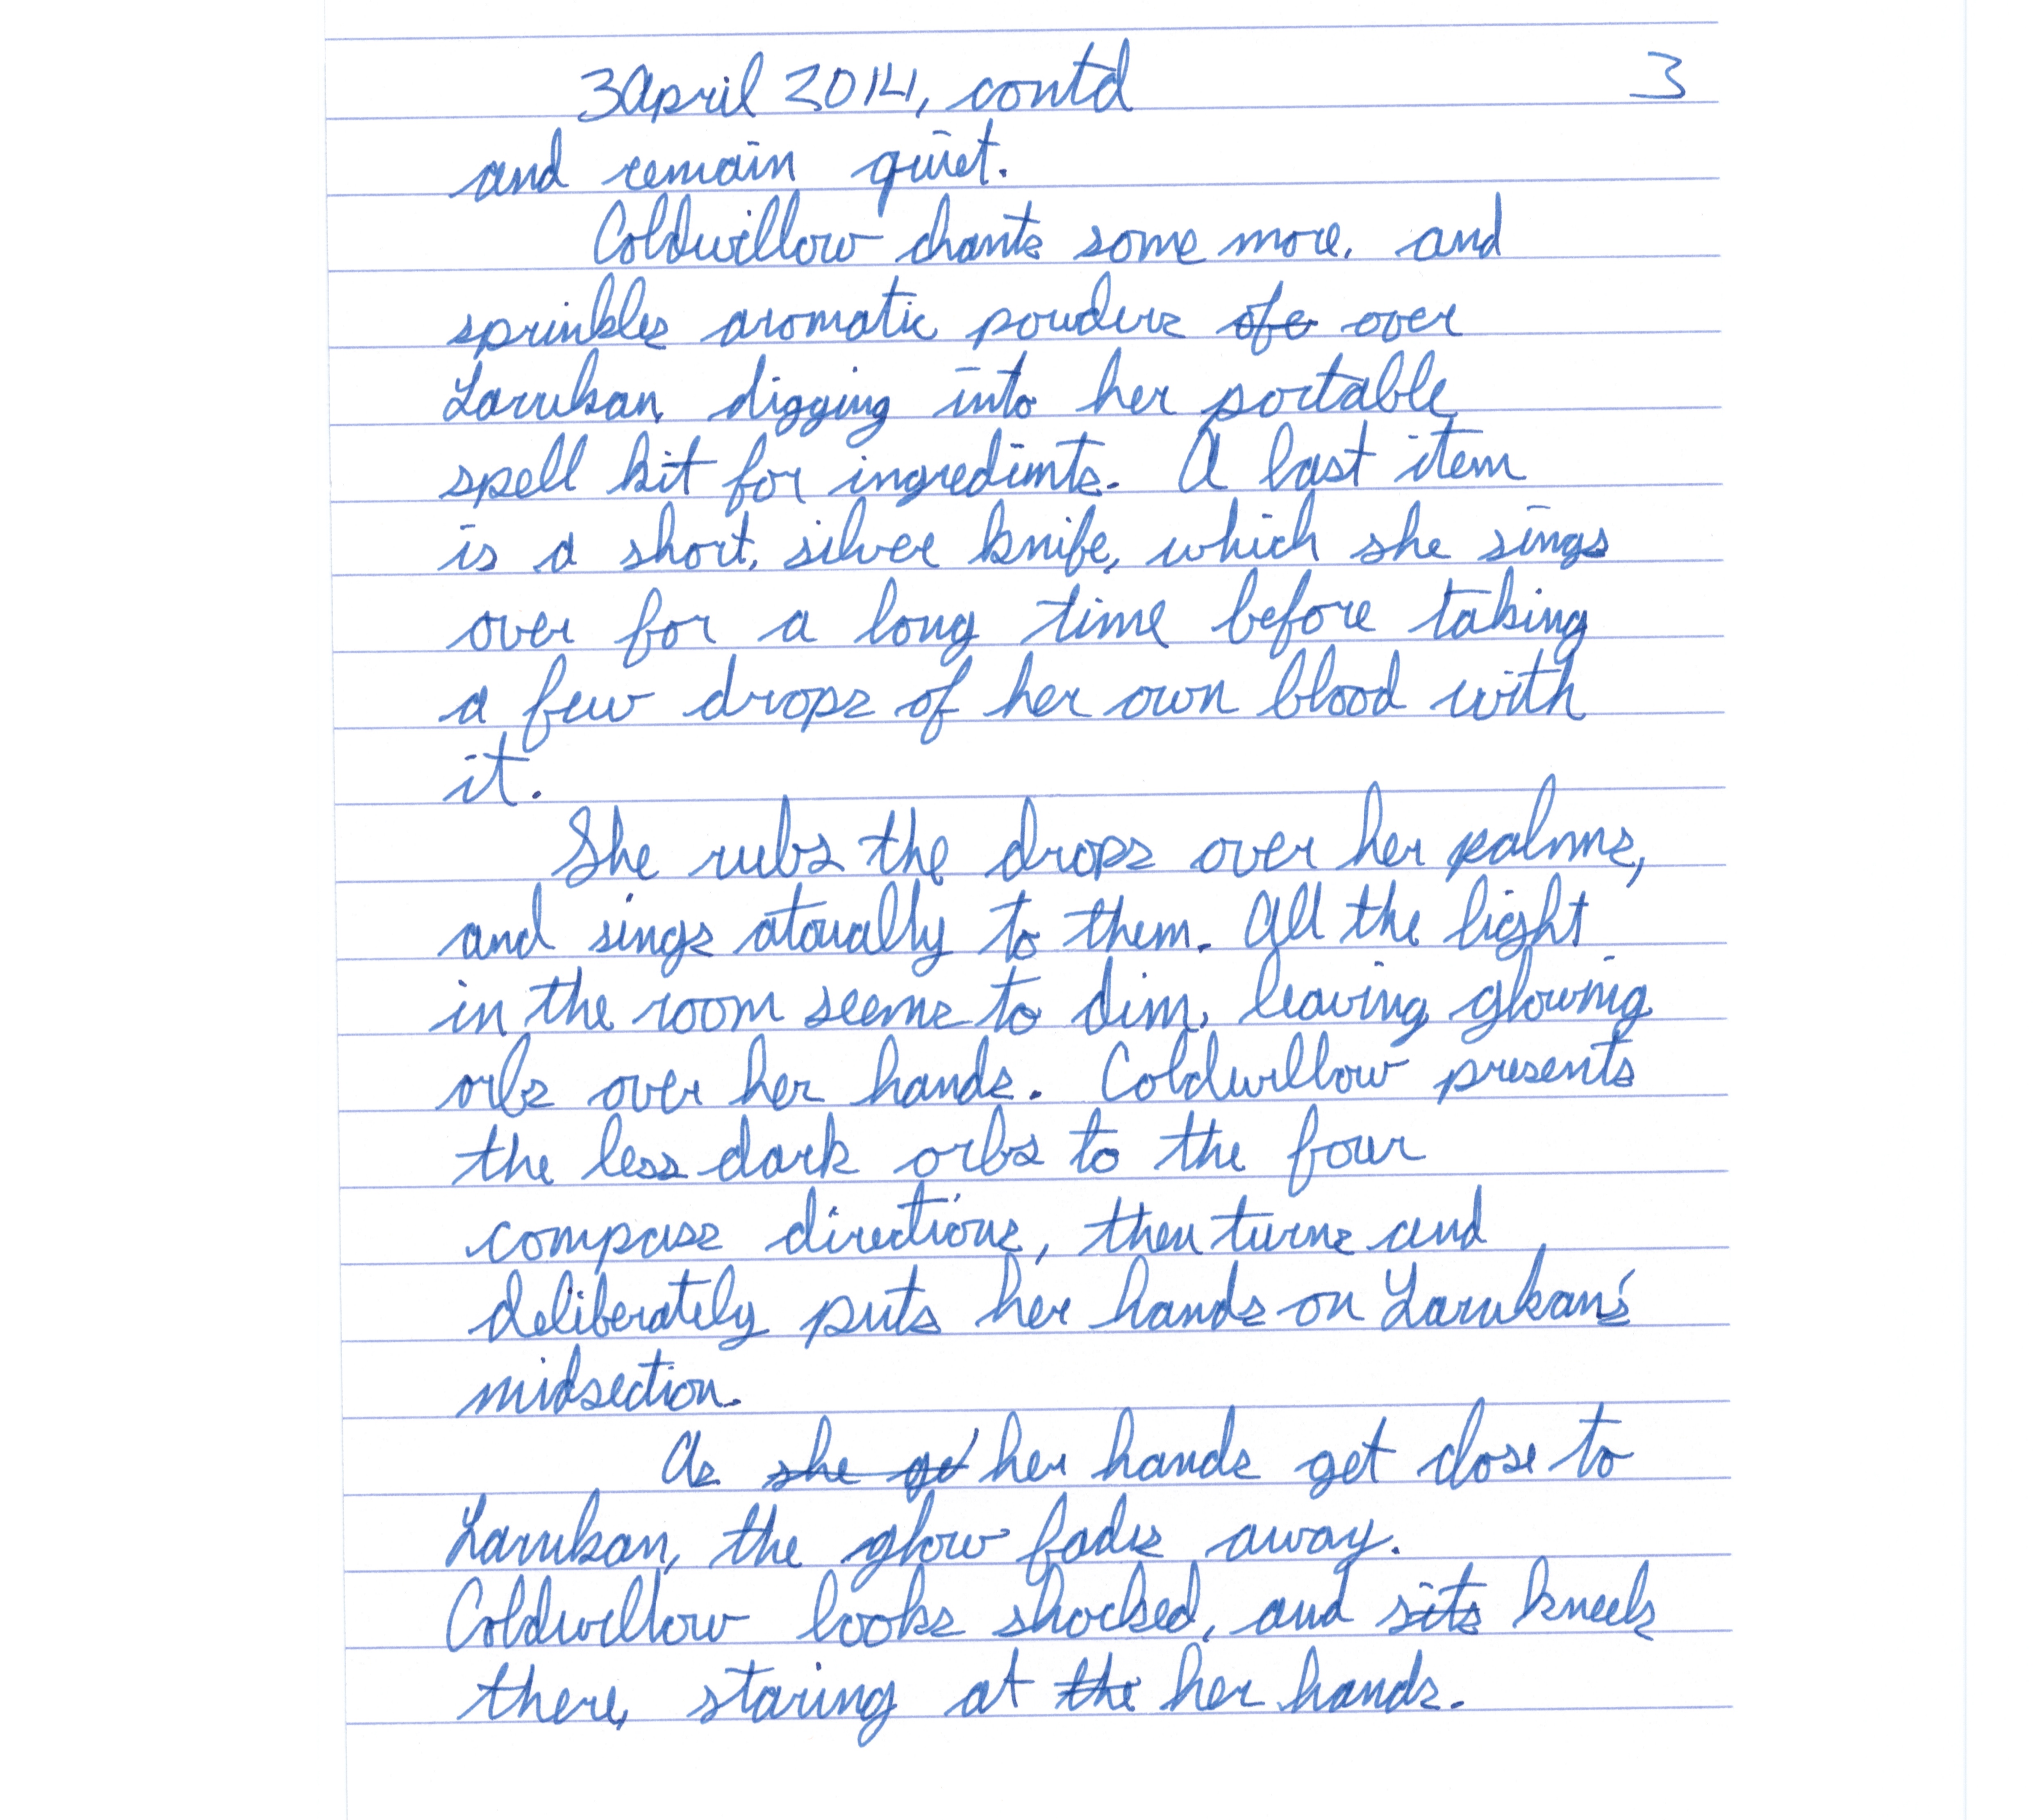 3 April 2014, contd 3
and remain quiet.
Coldwillow chants some more, and
sprinkles aromatic powders ofe over
Larukan, digging into her portable
spell kit for ingredients. A last item
is a short, silver knife, which she sings
over for a long time before taking
a few drops of her own blood with
it.
She rubs the drops over her palms,
and sings atonally to them. All the light
in the room seems to dim, leaving glowing
orbs over her hands. Coldwillow presents
the less dark orbs to the four
compass directions, then turns and
deliberately puts her hands on Larukan's
midsection.
As she get her hands get close to
Larukan, the glow fades away.
Coldwillow looks shocked, and sits kneels
there, staring at the her hands.